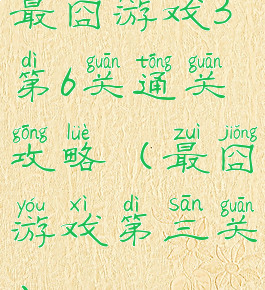 最囧游戏3
dì guān tōng guán
第6关通关
gōng lüè zuì jiǒng
攻略（最囧
yóu xì dì sān guān
游戏第三关